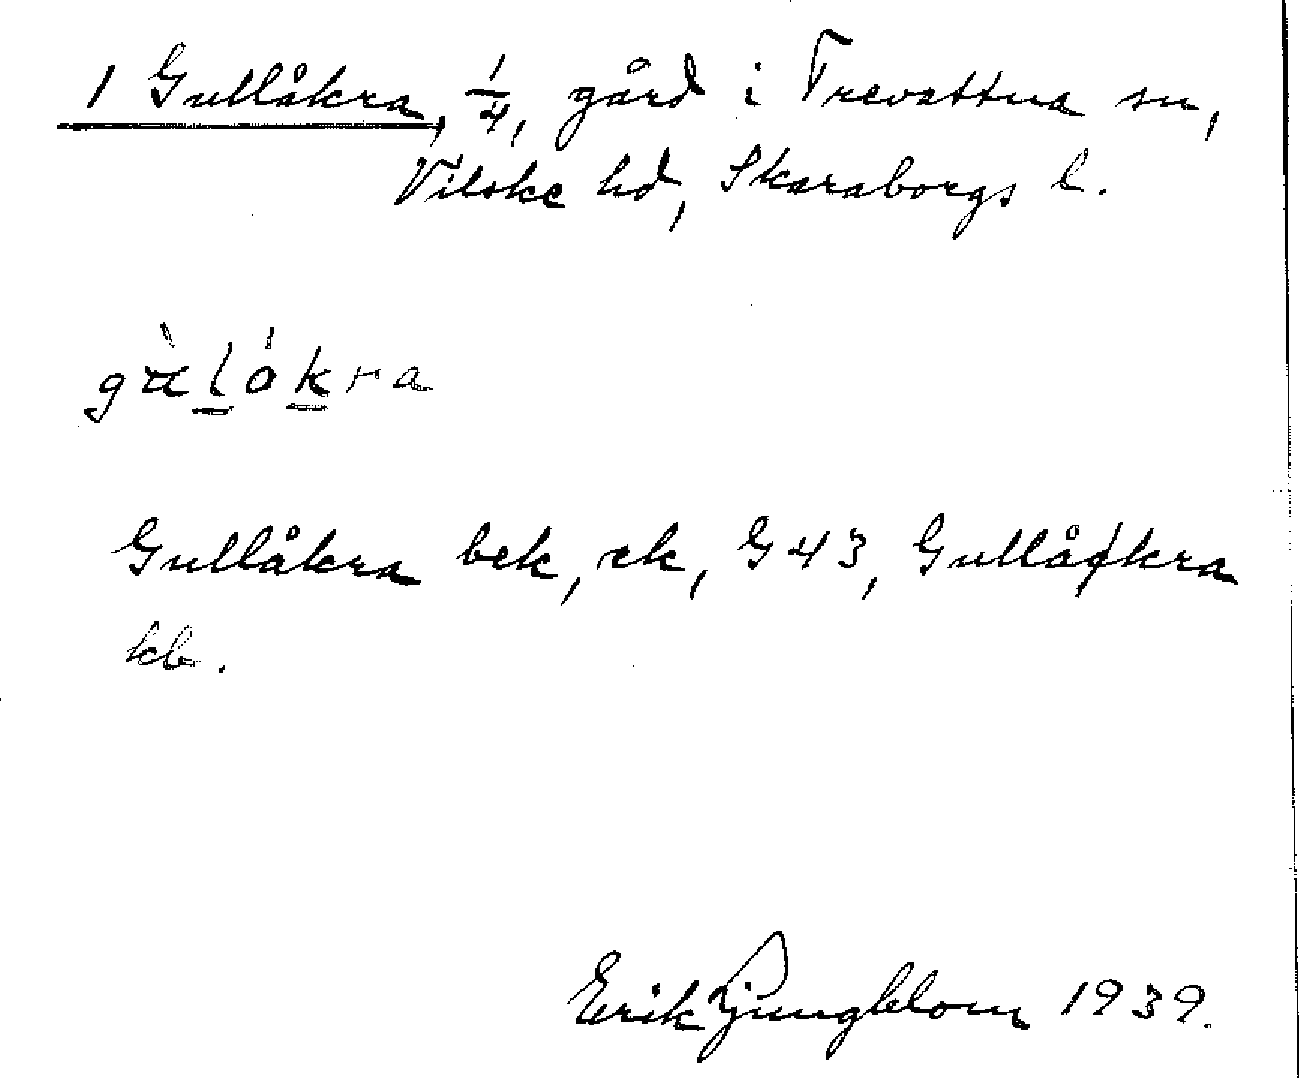 1 Gullåkra, 1/4, gård i Trevattna sn,
Vilske hd, Skaraborgs l.
Gullåkra bek, ek, G43, Gullå/kra
kb.
Erik Ljungblom 1939.